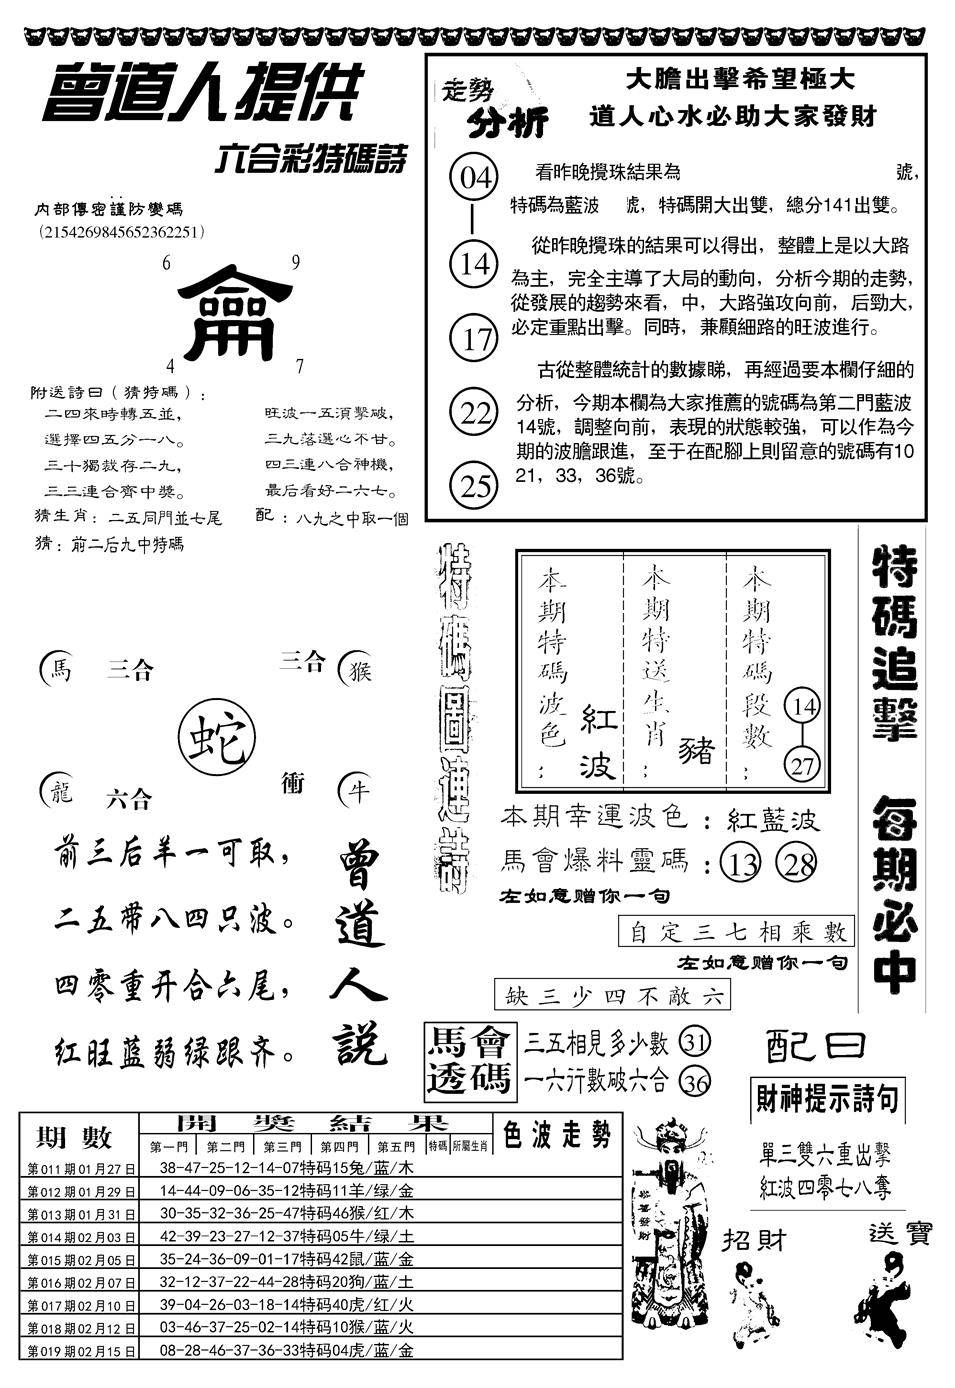 曾道人提供
六合彩特碼詩
内部傳密謹防變碼
（2154269845652362251）
6 9
4 7
附送詩曰（猜特碼）：
二四來時轉五並， 旺波一五須擊破，
選擇四五分一八。 三九落選心不甘。
三十獨裁存二九， 四三連八合神機，
三三連合齊中獎。 最后看好二六七。
猜生肖：二五同門並七尾 配：八九之中取一個
猜：前二后九中特碼
走勢
分析
大膽出擊希望極大
道人心水必助大家發財
04
14
17
22
25
看昨晚攪珠結果為 號，
特碼為藍波 號，特碼開大出雙，總分141出雙。
從昨晚攪珠的結果可以得出，整體上是以大路
為主，完全主導了大局的動向，分析今期的走勢，
從發展的趨勢來看，中，大路強攻向前，后勁大，
必定重點出擊。同時，兼顧細路的旺波進行。
古從整體統計的數據睇，再經過要本欄仔細的
分析，今期本欄為大家推薦的號碼為第二門藍波
14號，調整向前，表現的狀態較強，可以作為今
期的波膽跟進，至于在配腳上則留意的號碼有10
21，33，36號。
馬 三合 三合 猴
蛇
龍 六合 衝 牛
前三后羊一可取，
二五带八四只波。
四零重开合六尾，
红旺蓝弱绿跟齐。
曾道人說
特碼圖連詩
本期特碼波色：
紅波
本期特送生肖：
豬
本期特碼段數：
14
27
本期幸運波色：紅藍波
馬會爆料靈碼：13 28
左如意赠你一句
自定三七相乘數
左如意赠你一句
缺三少四不敵六
特碼追擊 每期必中
馬會透碼
三五相見多少數 31
一六行數破六合 36
配曰
財神提示詩句
單三雙六重出擊
紅波四零七八奪
恭喜發財
招財
送寶
期數 開獎結果 色波走勢
第一門 第二門 第三門 第四門 第五門 特碼 所屬生肖
第011期01月27日 38-47-25-12-14-07特码15兔/蓝/木
第012期01月29日 14-44-09-06-35-12特码11羊/绿/金
第013期01月31日 30-35-32-36-25-47特码46猴/红/木
第014期02月03日 42-39-23-27-12-37特码05牛/绿/土
第015期02月05日 35-24-36-09-01-17特码42鼠/蓝/金
第016期02月07日 32-12-37-22-44-28特码20狗/蓝/土
第017期02月10日 39-04-26-03-18-14特码40虎/红/火
第018期02月12日 03-46-37-25-02-14特码10猴/蓝/火
第019期02月15日 08-28-46-37-36-33特码04虎/蓝/金